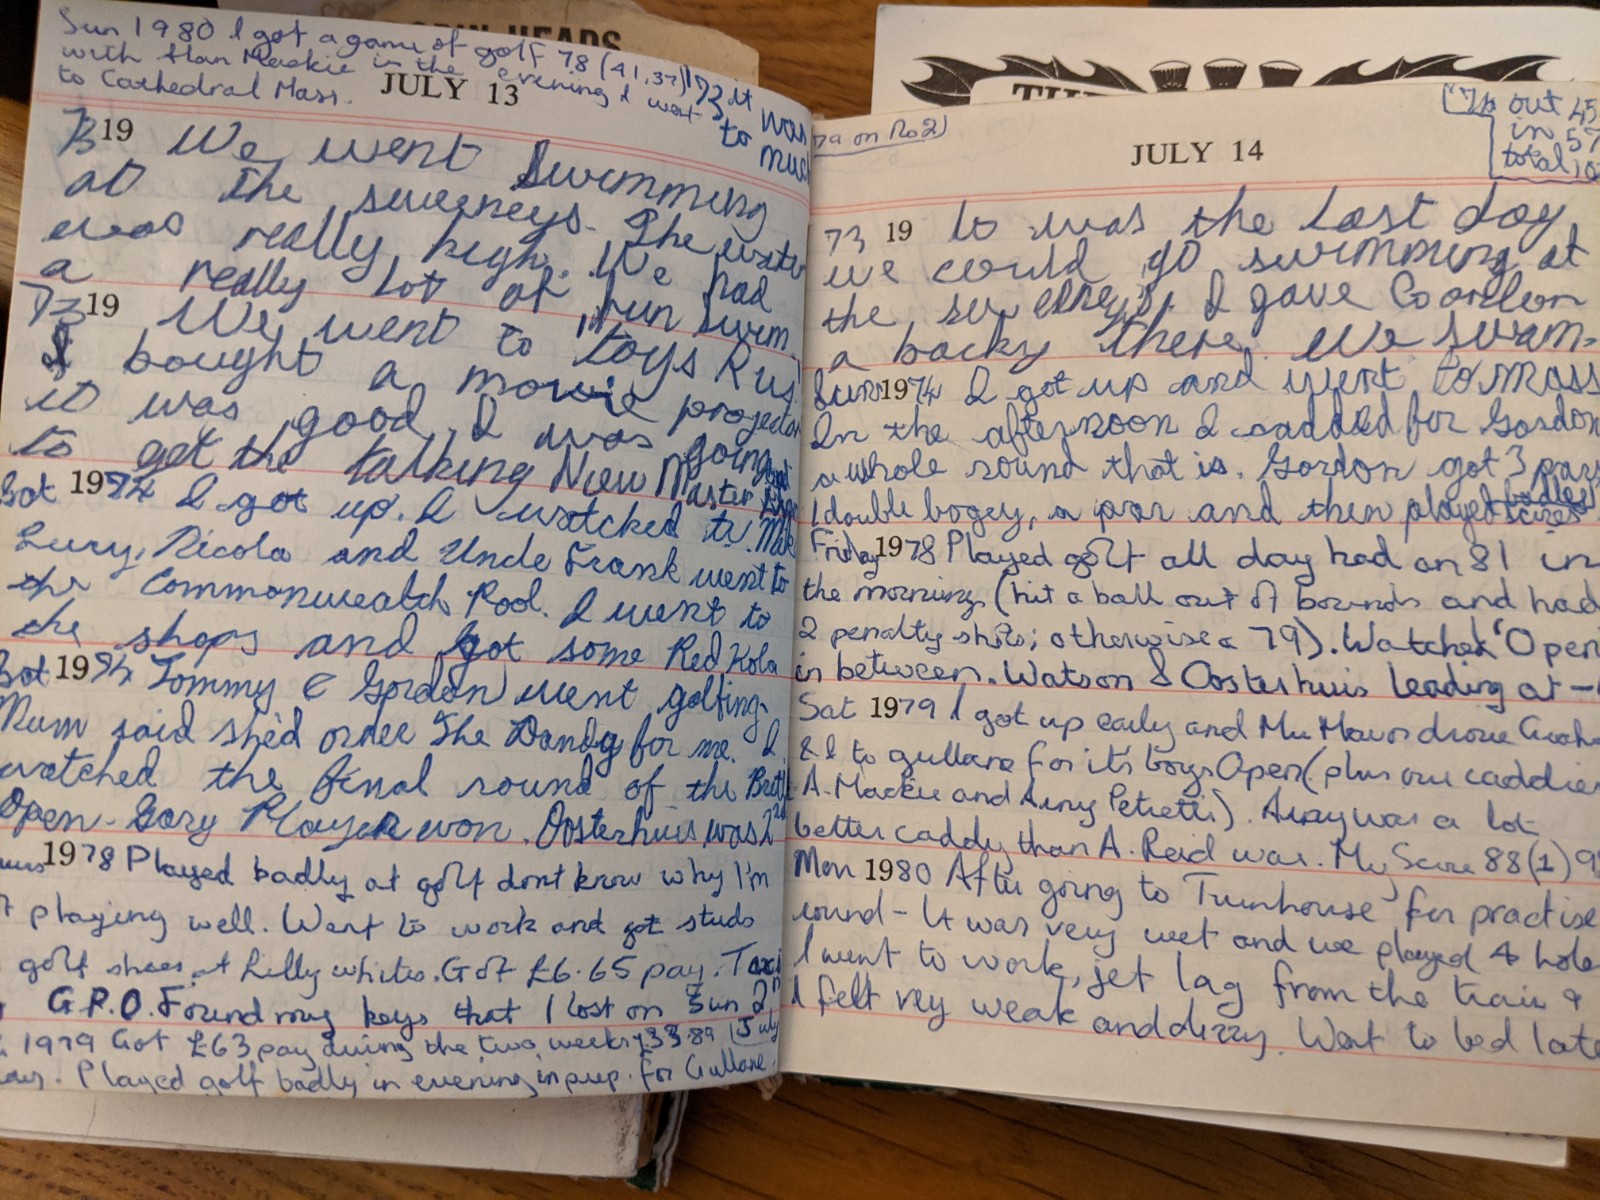 Sun 1980 I got a game of golf 78 (41,37)
with Alan Mackie in the evening & went
to Cathedral Mass.
73 it was
to much
JULY 13
73 19 We went Swimming
at the sweeneys. The water
was really high. We had
a really lot of fun swim
73 19 We went to toys R us
I bought a movie projector
it was good. I was going
to get the talking View Master
Sat 1974 I got up. I watched tv.
Lucy, Nicola and Uncle Frank went to
the Commonweatch Pool. I went to
the shops and got some Red Kola
Sat 1974 Tommy & Gordon went golfing.
Mum said she'd order The Dandy for me. I
watched the final round of the British
Open - Gary Player won. Oosterhuis was 2nd
1978 Played badly at golf dont know why I'm
playing well. Went to work and got studs
golf shoes at Lilly whites. Got £6.65 pay. Taxi
G.P.O. Found my keys that I lost on Sun 2nd
1979 Got £63 pay during the two weeks £33.89 (July
Played golf badly in evening in prep. for Gullane.
HEADS
THE
on No2)
JULY 14
out 45
in 57
total
73 19 It was the last day
we could go swimming at
the sweeneys. I gave Goordon
a backy there. We swam.
Sun 1974 I got up and went to mass
In the afternoon I caddied for Gordon
a whole round that is. Gordon got 3 pars
1 double bogey, a par and then played
Friday 1978 Played golf all day had an 81 in
the morning (hit a ball out of bounds and had
2 penalty shots; otherwise a 79). Watched 'Open'
in between. Watson & Oosterhuis leading at -
Sat 1979 I got up early and Mr Mavor drove
& I to gullane for it's boys Open (plus our caddies
A. Mackie and Airey Petretti). Airey was a lot
better caddy than A. Reid was. My Score 88(1) 9
Mon 1980 After going to Turnhouse for practise
round - It was very wet and we played 4 holes
I went to work, jet lag from the train &
I felt vey weak and dizzy. Went to bed late